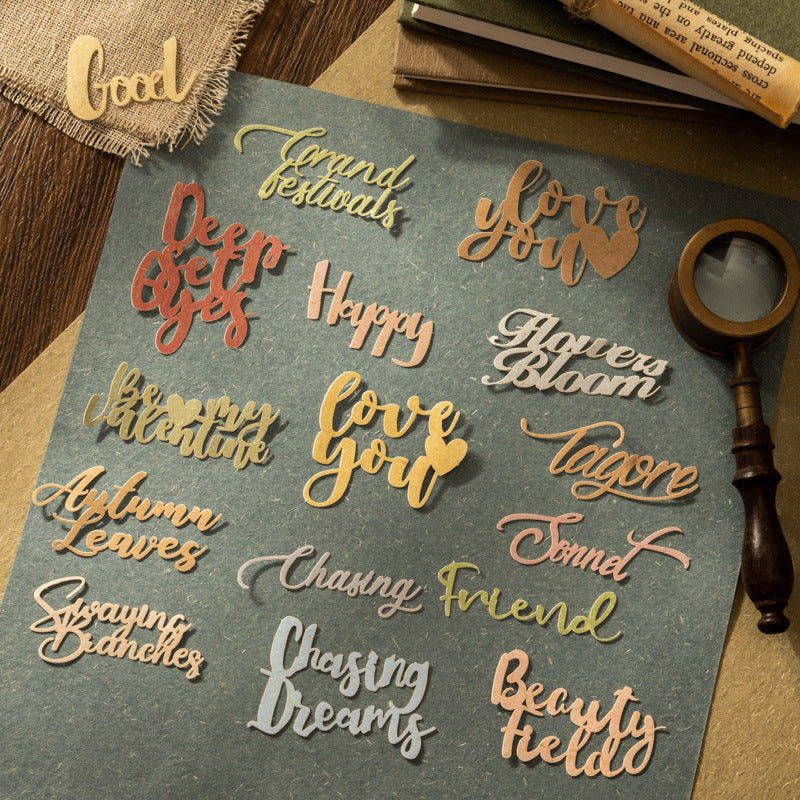 Good
Grand
festivals
love
you
Deep
Set
Eyes
Happy
Flowers
Bloom
Be my
Valentine
love
you
Tagore
Autumn
Leaves
Sonnet
Chasing
Friend
Swaying
Branches
Chasing
Dreams
Beauty
Field
cross sectional area and the
depend greatly on the
spacing plates and